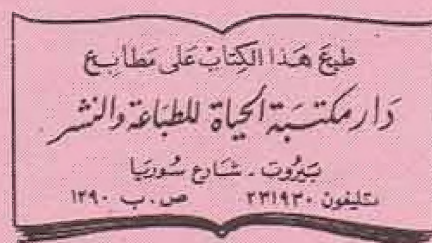 طبع هَذا الكِتابْ عَلى مَطَابِع
دَار مكتَبَة الحيَاة للطبَاعَة وَالنشر
بَيروت - شارع سُوريَا
تليفون ٢٣١٩٣٠ ص. ب ١٢٩٠